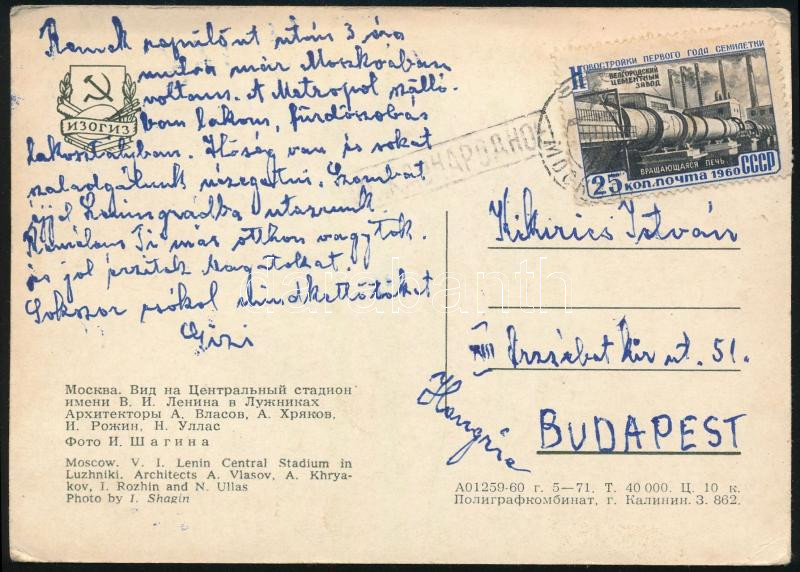 Remek repülőút után 3 óra
mulva már Moszkvában
voltam. A Metropol szálló-
ban lakom, fürdőszobás
lakosztályban. Hőség van és sokat
szaladgálunk nézegetni. Szombat
éjjel Leningrádba utazunk.
Remélem Ti már otthon vagytok
és jól érzitek magatokat.
Sokszor csókol mindkettőtöket
Gizi
ИЗОГИЗ
НОВОСТРОЙКИ ПЕРВОГО ГОДА СЕМИЛЕТКИ
БЕЛГОРОДСКИЙ
ЦЕМЕНТНЫЙ
ЗАВОД
ВРАЩАЮЩАЯСЯ ПЕЧЬ
25 КОП. ПОЧТА 1960 СССР
НАРОДНОЕ
МОСК
Kikirics István
XIII Erzsébet kir. ut. 51.
BUDAPEST
Hongrie
darabanth
Москва. Вид на Центральный стадион
имени В. И. Ленина в Лужниках
Архитекторы А. Власов, А. Хряков,
И. Рожин, Н. Уллас
Фото И. Шагина
Moscow. V. I. Lenin Central Stadium in
Luzhniki. Architects A. Vlasov, A. Khrya-
kov, I. Rozhin and N. Ullas
Photo by I. Shagin
А01259-60 г. 5—71. Т. 40 000. Ц. 10 к.
Полиграфкомбинат, г. Калинин. З. 862.